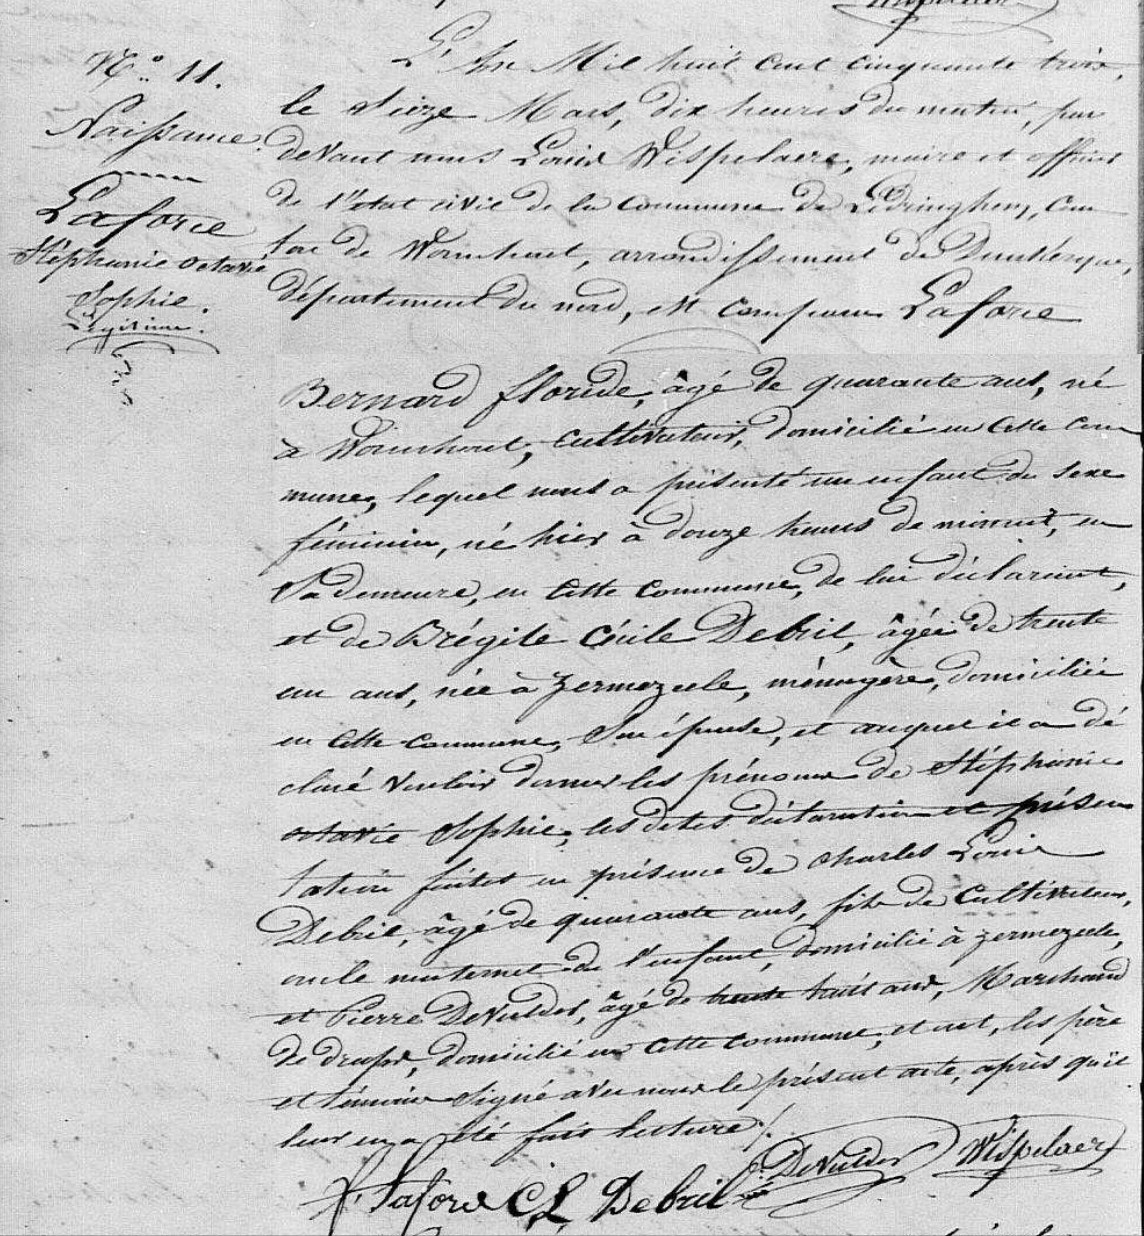 N° 11.
Naissance.
Laforce
Stéphanie octavie
Sophie.
Légitime.
L'An Mil huit cent cinquante trois,
le seize Mars, dix heures du matin, par
devant nous Louis Wispelaere, maire et officier
de l'état civil de la commune de Ledringhem, can
ton de Wormhout, arrondissement de Dunkerque,
département du nord, est comparu Laforce
Bernard floride, âgé de quarante ans, né
à Wormhout, cultivateur, domicilié en cette com
mune, lequel nous a présenté un enfant du sexe
féminin, né hier à douze heures de minuit, en
sa demeure, en cette commune, de lui déclarant,
et de Brégite Cécile Debril, âgée de trente
un ans, née à Zermezeele, ménagère, domiciliée
en cette commune, Son épouse, et auquel il a dé
claré vouloir donner les prénoms de Stéphanie
octavie Sophie, les dites déclaration et présen
tation faites en présence de Charles Louis
Debril, âgé de quarante ans, fils de Cultivateur,
oncle maternel de l'enfant, domicilié à Zermezeele,
et Pierre DeVulder, âgé de trente huit ans, Marchand
de draps, domicilié en cette commune, et ont, les père
et témoins signé avec nous le présent acte, après qu'il
leur en a été fait lecture /.
Laforce C L Debril P. DeVulder Wispelaere